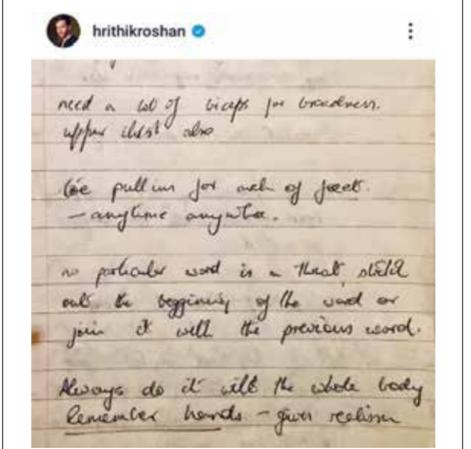 hrithikroshan
need a lot of biceps for broadness.
upper chest also
toe pull ins for arch of feet.
– anytime anywhere.
no particular word is a threat, stretch
out the beggining of the word or
join it with the previous word.
Always do it with the whole body
Remember hands – gives realism